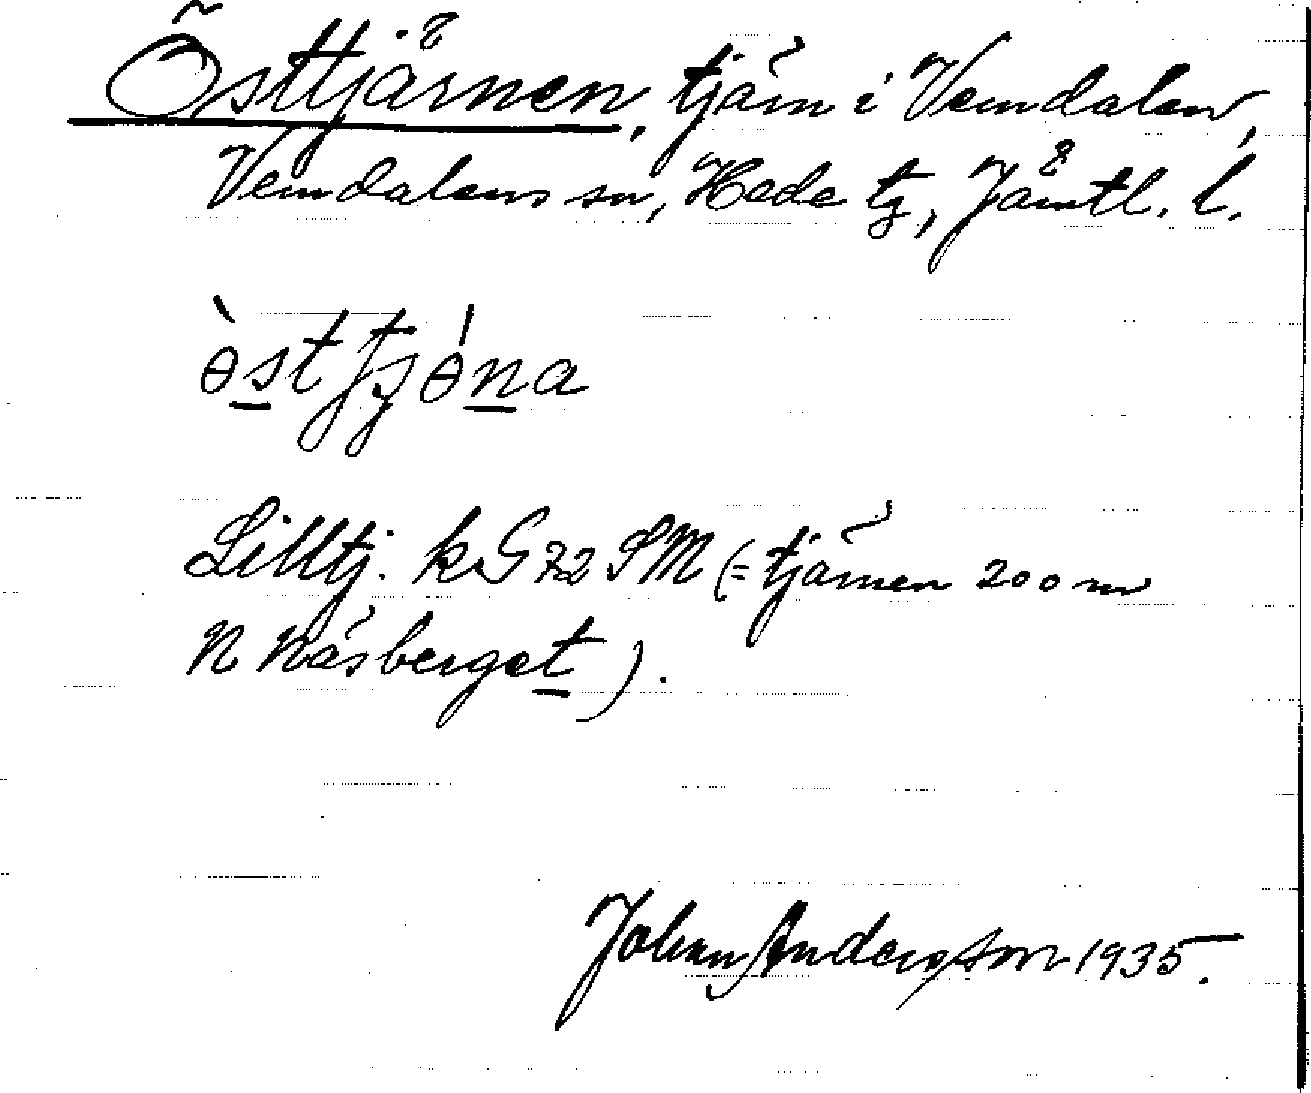 Östtjärnen, tjärn i Vemdalen,
Vemdalens sn, Hede tg, Jämtl. l.
Lilltj. k. G 72 SM (= tjärnen 200 m
N Näsberget).
Johan Anderson 1935.